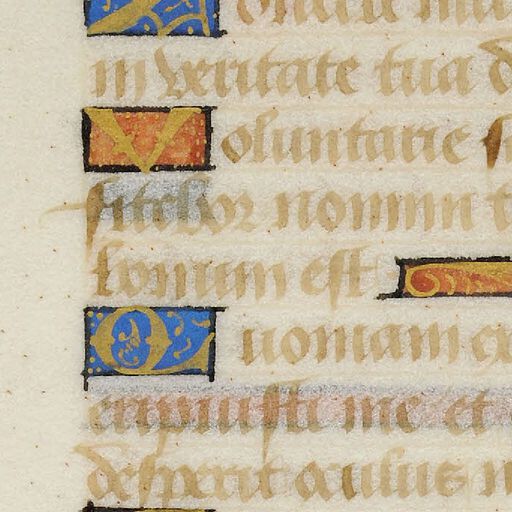 in veritate tua d
Voluntarie s
fitebor nomini t
bonum est
Quoniam ex
eripiusti me et
desperit oculus m